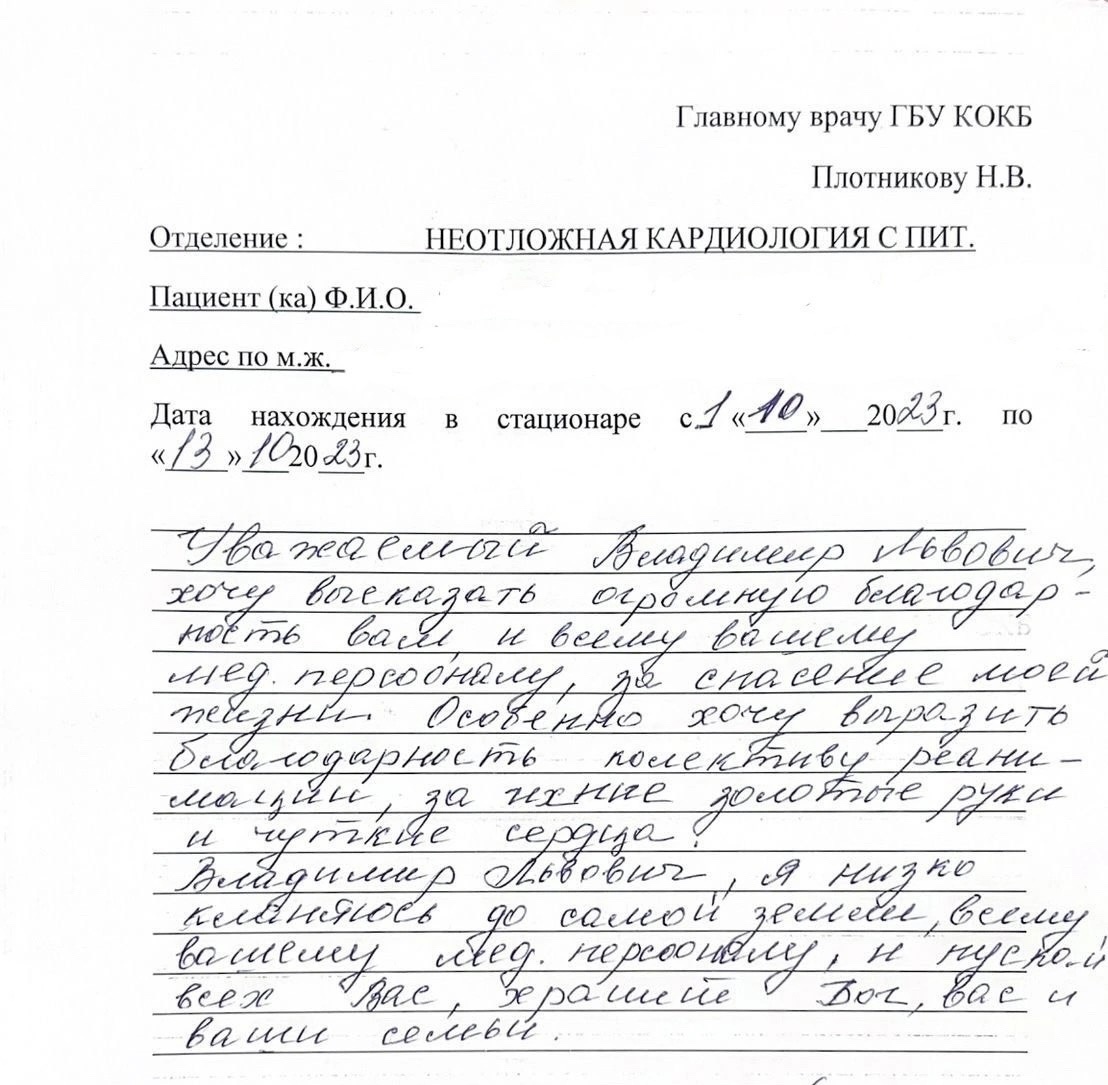 Главному врачу ГБУ КОКБ
Плотникову Н.В.
Отделение : НЕОТЛОЖНАЯ КАРДИОЛОГИЯ С ПИТ.
Пациент (ка) Ф.И.О.
Адрес по м.ж.
Дата нахождения в стационаре с 1 «10» 2023г. по
«13» 10 2023г.
Уважаемый Владимир Львович,
хочу высказать огромную благодар-
ность вам, и всему вашему
мед. персоналу, за спасение моей
жизни. Особенно хочу выразить
благодарность колективу реани-
мации, за ихние золотые руки
и чуткие сердца!
Владимир Львович, я низко
кланяюсь до самой земли, всему
вашему мед. персоналу, и пускай
всех Вас, хранит Бог, вас и
ваши семьи.